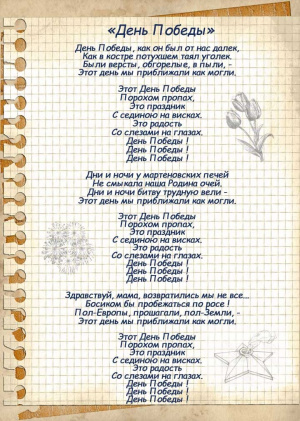 «День Победы»
День Победы, как он был от нас далек,
Как в костре потухшем таял уголек.
Были версты, обгорелые, в пыли, -
Этот день мы приближали как могли.
Этот День Победы
Порохом пропах,
Это праздник
С сединою на висках.
Это радость
Со слезами на глазах.
День Победы !
День Победы !
День Победы !
Дни и ночи у мартеновских печей
Не смыкала наша Родина очей.
Дни и ночи битву трудную вели -
Этот день мы приближали как могли.
Этот День Победы
Порохом пропах,
Это праздник
С сединою на висках.
Это радость
Со слезами на глазах.
День Победы !
День Победы !
День Победы !
Здравствуй, мама, возвратились мы не все...
Босиком бы пробежаться по росе !
Пол-Европы, прошагали, пол-Земли, -
Этот день мы приближали как могли.
Этот День Победы
Порохом пропах,
Это праздник
С сединою на висках.
Это радость
Со слезами на глазах.
День Победы !
День Победы !
День Победы !